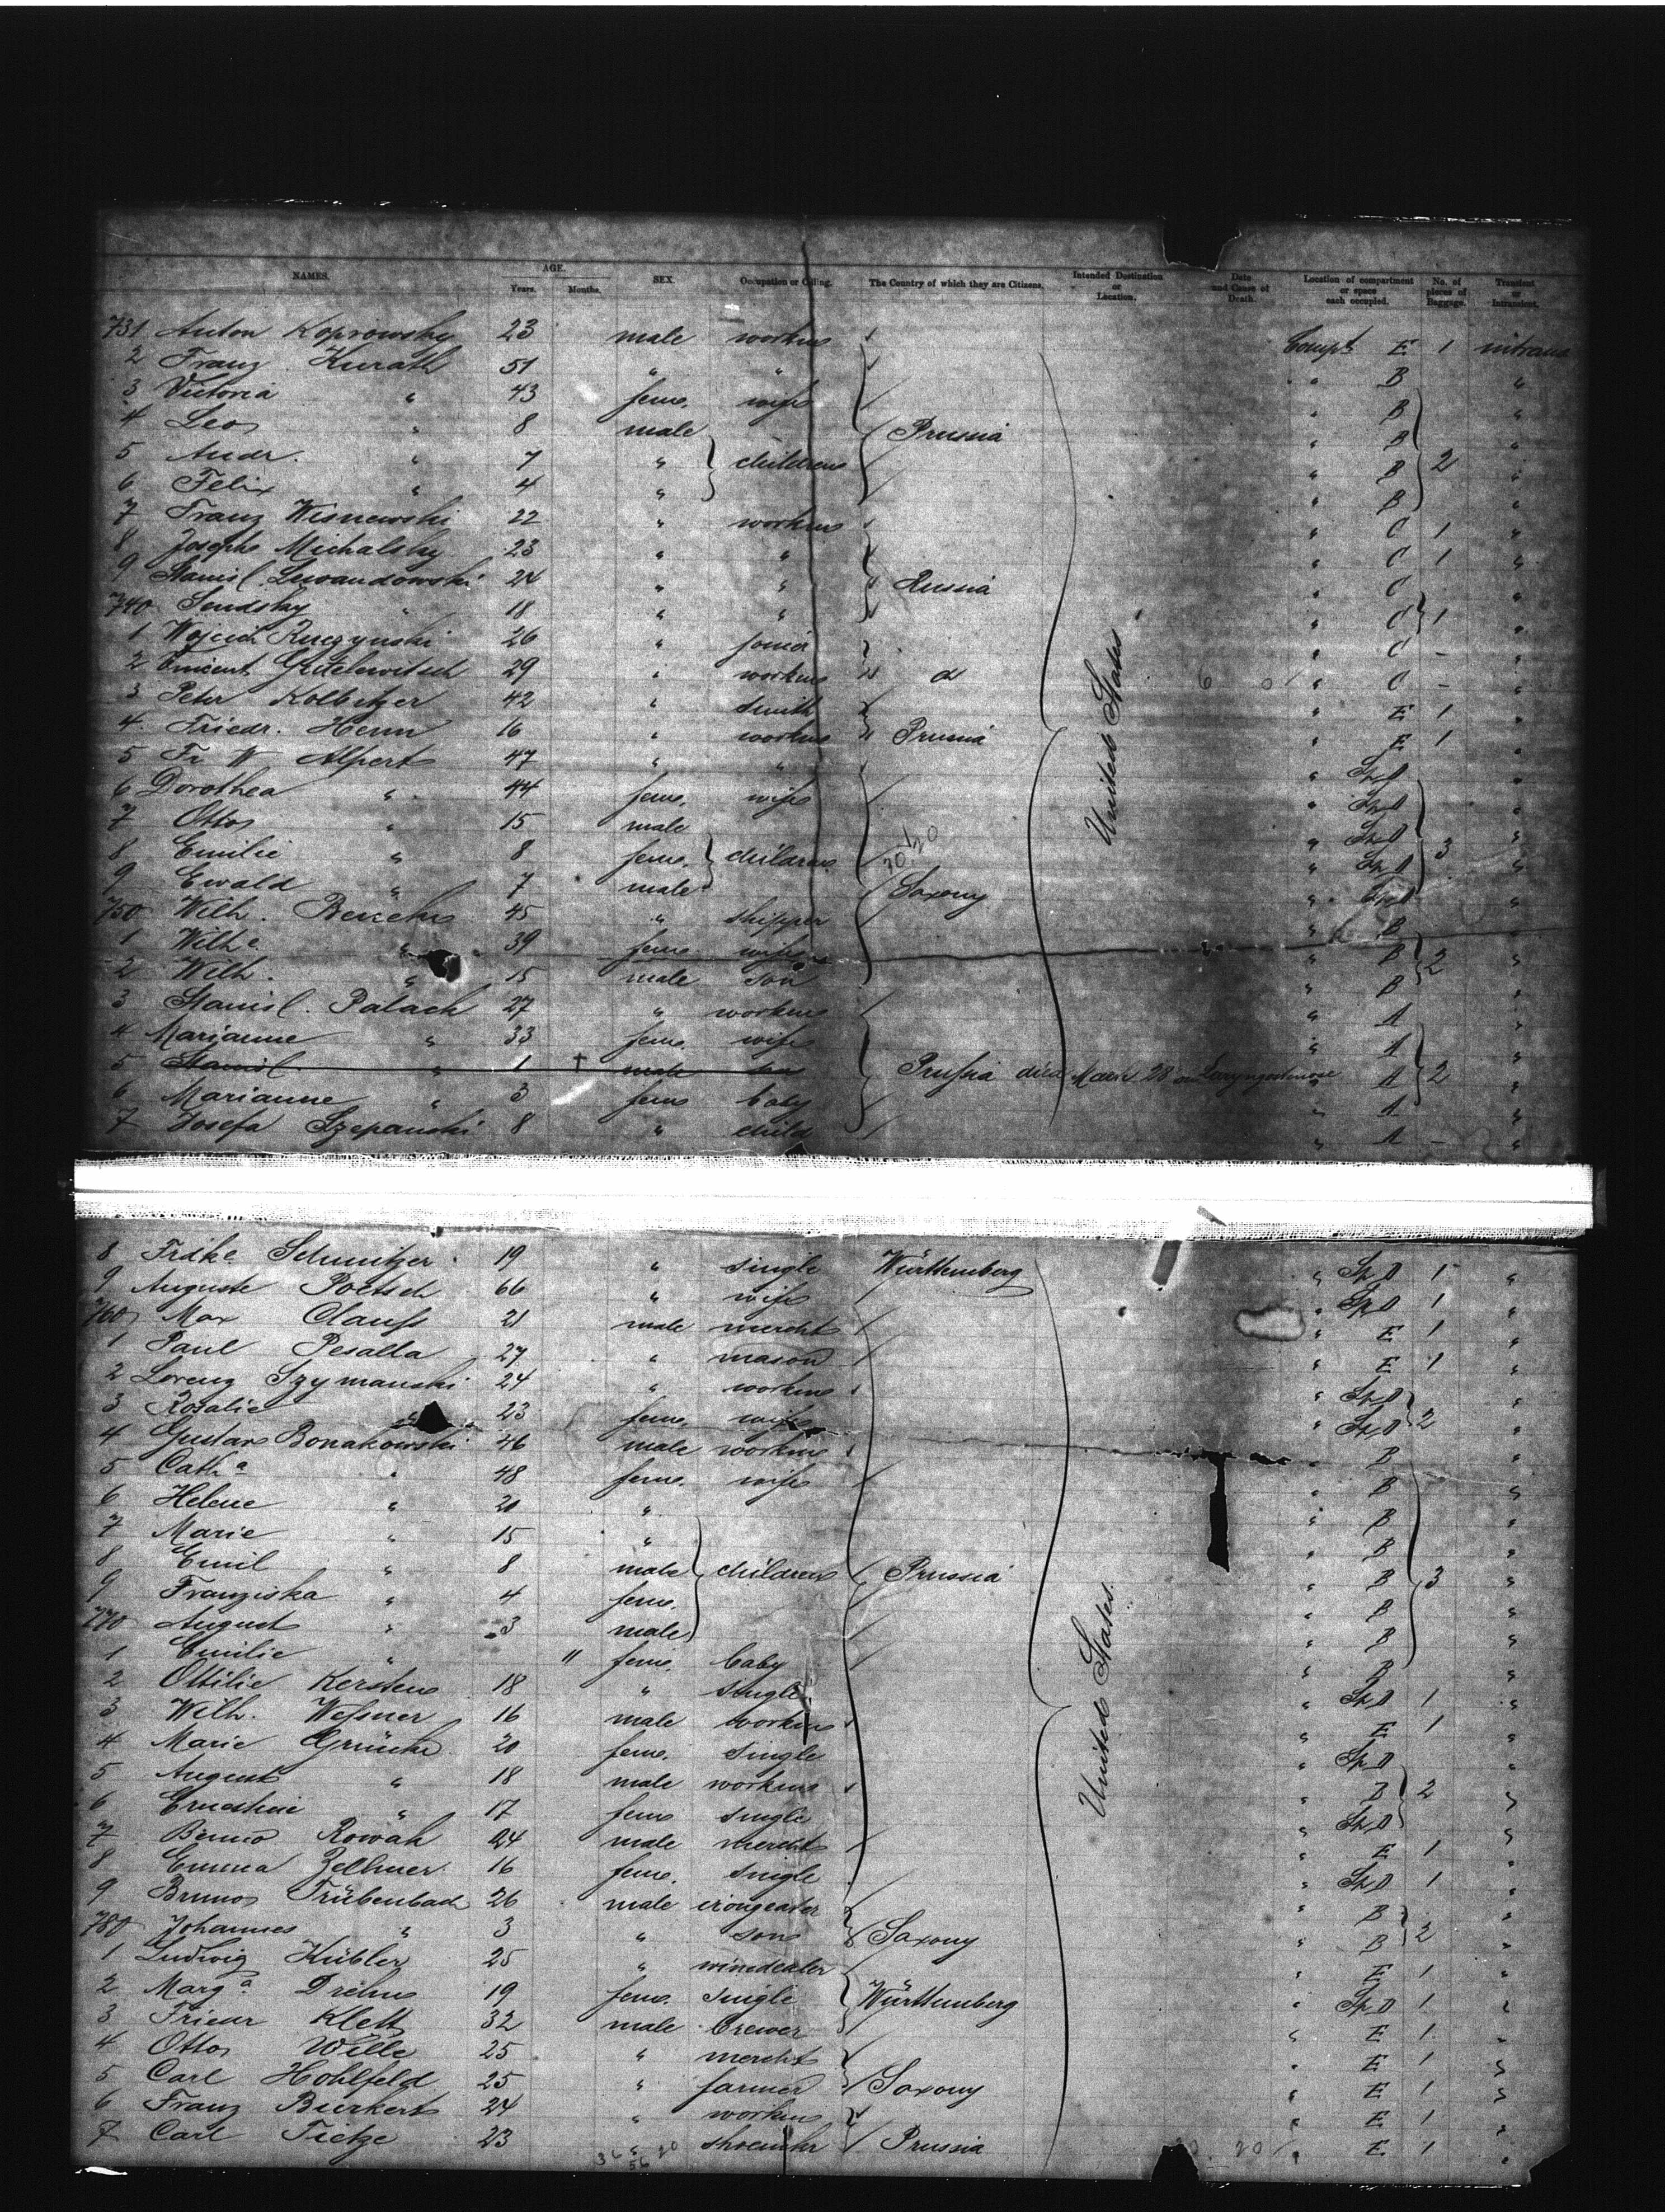 NAMES. AGE. Years. Months. SEX. Occupation or Calling. The Country of which they are Citizens. Intended Destination or Location. Date and Cause of Death. Location of compartment or space each occupied. No. of pieces of Baggage. Transient or Intransient.
731 Anton Koprowsky 23 male workm Compt. E 1 intrans
2 Franz Kurath 51 " " " B "
3 Victoria " 43 feme. wife " B "
4 Leo " 8 male Prussia " B "
5 Andr. " 7 " children " B 2 "
6 Felix " 4 " " B "
7 Franz Wisnewski 22 " workm " C 1 "
8 Josephs Michalsky 23 " " " C 1 "
9 Stanisl. Lewandowski 24 " " Russia " C "
740 Sendsky " 18 " " " C 1 "
1 Wojcich 26 " " C - "
2 Vincent 29 " workm " C - "
3 Peter Kolbitzer 42 " smith " E 1 "
4 Friedr. Henn 16 " workm Prussia " E 1 "
5 Fr W Alpert 47 " " " Sp.D "
6 Dorothea " 44 feme. wife " Sp.D "
7 Otto " 15 male " Sp.D "
8 Emilie " 8 feme. children " Sp.D 3 "
9 Ewald " 7 male Saxony " Sp.D "
750 Wilh. 45 " shipper " B "
1 Wilhe. " 39 feme. wife " B 2 "
2 Wilh. " 15 male son " B "
3 Stanisl. Palach 27 " workm " A "
4 Marianne " 33 feme. wife " A "
5 Stanisl. " 1 † male son Prussia died March 28 on Laryngostenose " A 2 "
6 Marianne " 3 feme baby " A "
7 Josefa Szepanski 8 " child " A - "
United States
8 Fridke Schnitzer 19 " single Württemberg " Sp.D 1 "
9 Auguste Poetsch 66 " wife " Sp.D 1 "
760 Max Clauss 21 male mercht " E 1 "
1 Paul Pesalla 27 " mason " E 1 "
2 Lorenz Szymanski 24 " workm " Sp.D "
3 Rosalie " 23 feme. wife " Sp.D 2 "
4 Gustav Bonakowski 46 male workm " B "
5 Catha " 48 feme. wife " B "
6 Helene " 20 " " B "
7 Marie " 15 " " B "
8 Emil " 8 male children Prussia " B 3 "
9 Franziska " 4 feme. " B "
770 August " 3 male " B "
1 Emilie " 11 feme. baby " B "
2 Ottilie Kersten 18 " single " Sp.D 1 "
3 Wilh. Wessner 16 male workm " E 1 "
4 Marie 20 feme. single " Sp.D "
5 August " 18 male workm " B 2 "
6 Ernestine " 17 feme single " Sp.D "
7 Benno Rowah 24 male mercht " E 1 "
8 Emma Zellmer 16 feme. single " Sp.D 1 "
9 Bruno Trübenbach 26 male " B "
780 Johannes " 3 " son Saxony " B 2 "
1 Ludwig Kübler 25 " winedealer " E 1 "
2 Marga. 19 feme. single Württemberg " Sp.D 1 "
3 Friedr Klett 32 male brewer " E 1 "
4 Otto Wille 25 " mercht " E 1 "
5 Carl Hohlfeld 25 " farmer Saxony " E 1 "
6 Franz Burkert 24 " workm " E 1 "
7 Carl Tietze 23 " shoemkr Prussia " E 1 "
United States.